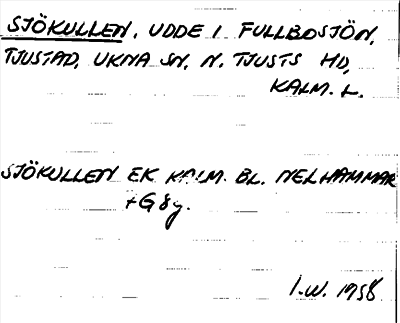 SJÖKULLEN, UDDE I FULLBOSJÖN,
TJUSTAD, UKNA SN, N. TJUSTS HD,
KALM. L.
SJÖKULLEN EK KALM. BL. NELHAMMAR
+G 8y.
I.W. 1958